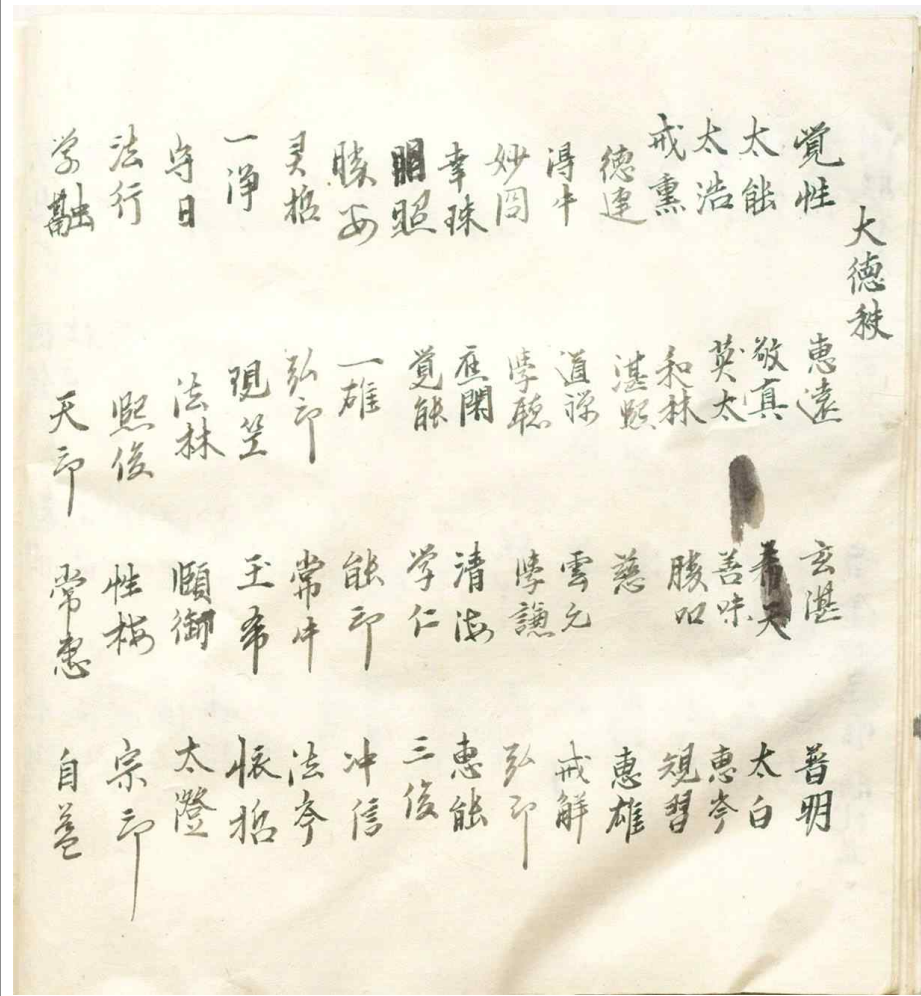 大德秩
覚性 惠遠 玄湛 普明
太能 敬真 希天 太白
太浩 英太 善味 惠岑
戒熏 和林 勝印 規習
德連 湛熙 慈 惠雄
得牛 道禅 雲允 戒解
妙囧 學聴 學謙 弘印
幸珠 應閑 清海 惠能
眀照 覚能 学仁 三俊
勝安 一雄 能印 冲信
灵哲 弘印 常牛 法岑
一浄 現笁 玉希 恢哲
守日 法林 順御 太澄
法行 熙俊 性梅 宗印
学融 天印 常惠 自益